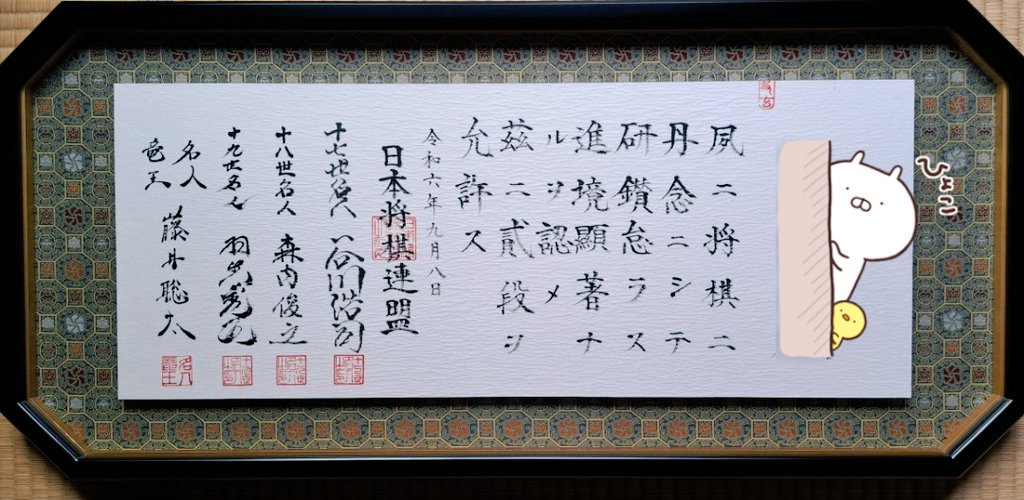 ひょこ
夙ニ将棋ニ
丹念ニシテ
研鑽怠ラス
進境顯著ナ
ルヲ認メ
茲ニ貳段ヲ
允許ス
令和六年九月八日
日本将棋連盟
十七世名人 谷川浩司
十八世名人 森内俊之
十九世名人 羽生善治
名人
竜王
藤井聡太